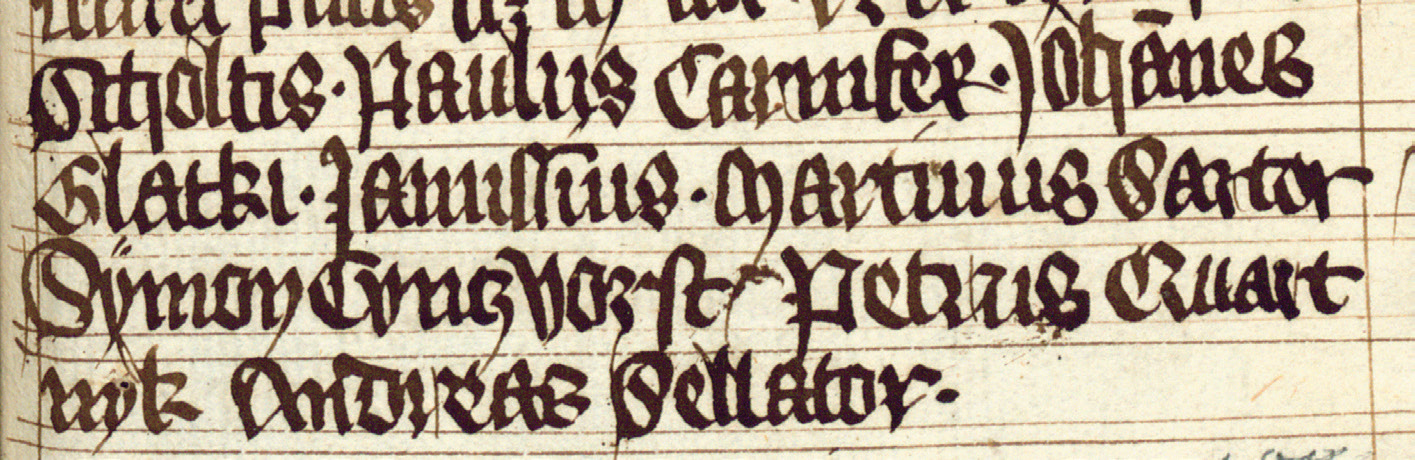 Scholtis · Paulus Carnifex · Joha̅nes
Glatki · Janussius · Martinus Sartor
Sÿmon Cynczvorst Petrus Quart
nyk Andreas Sellator ·